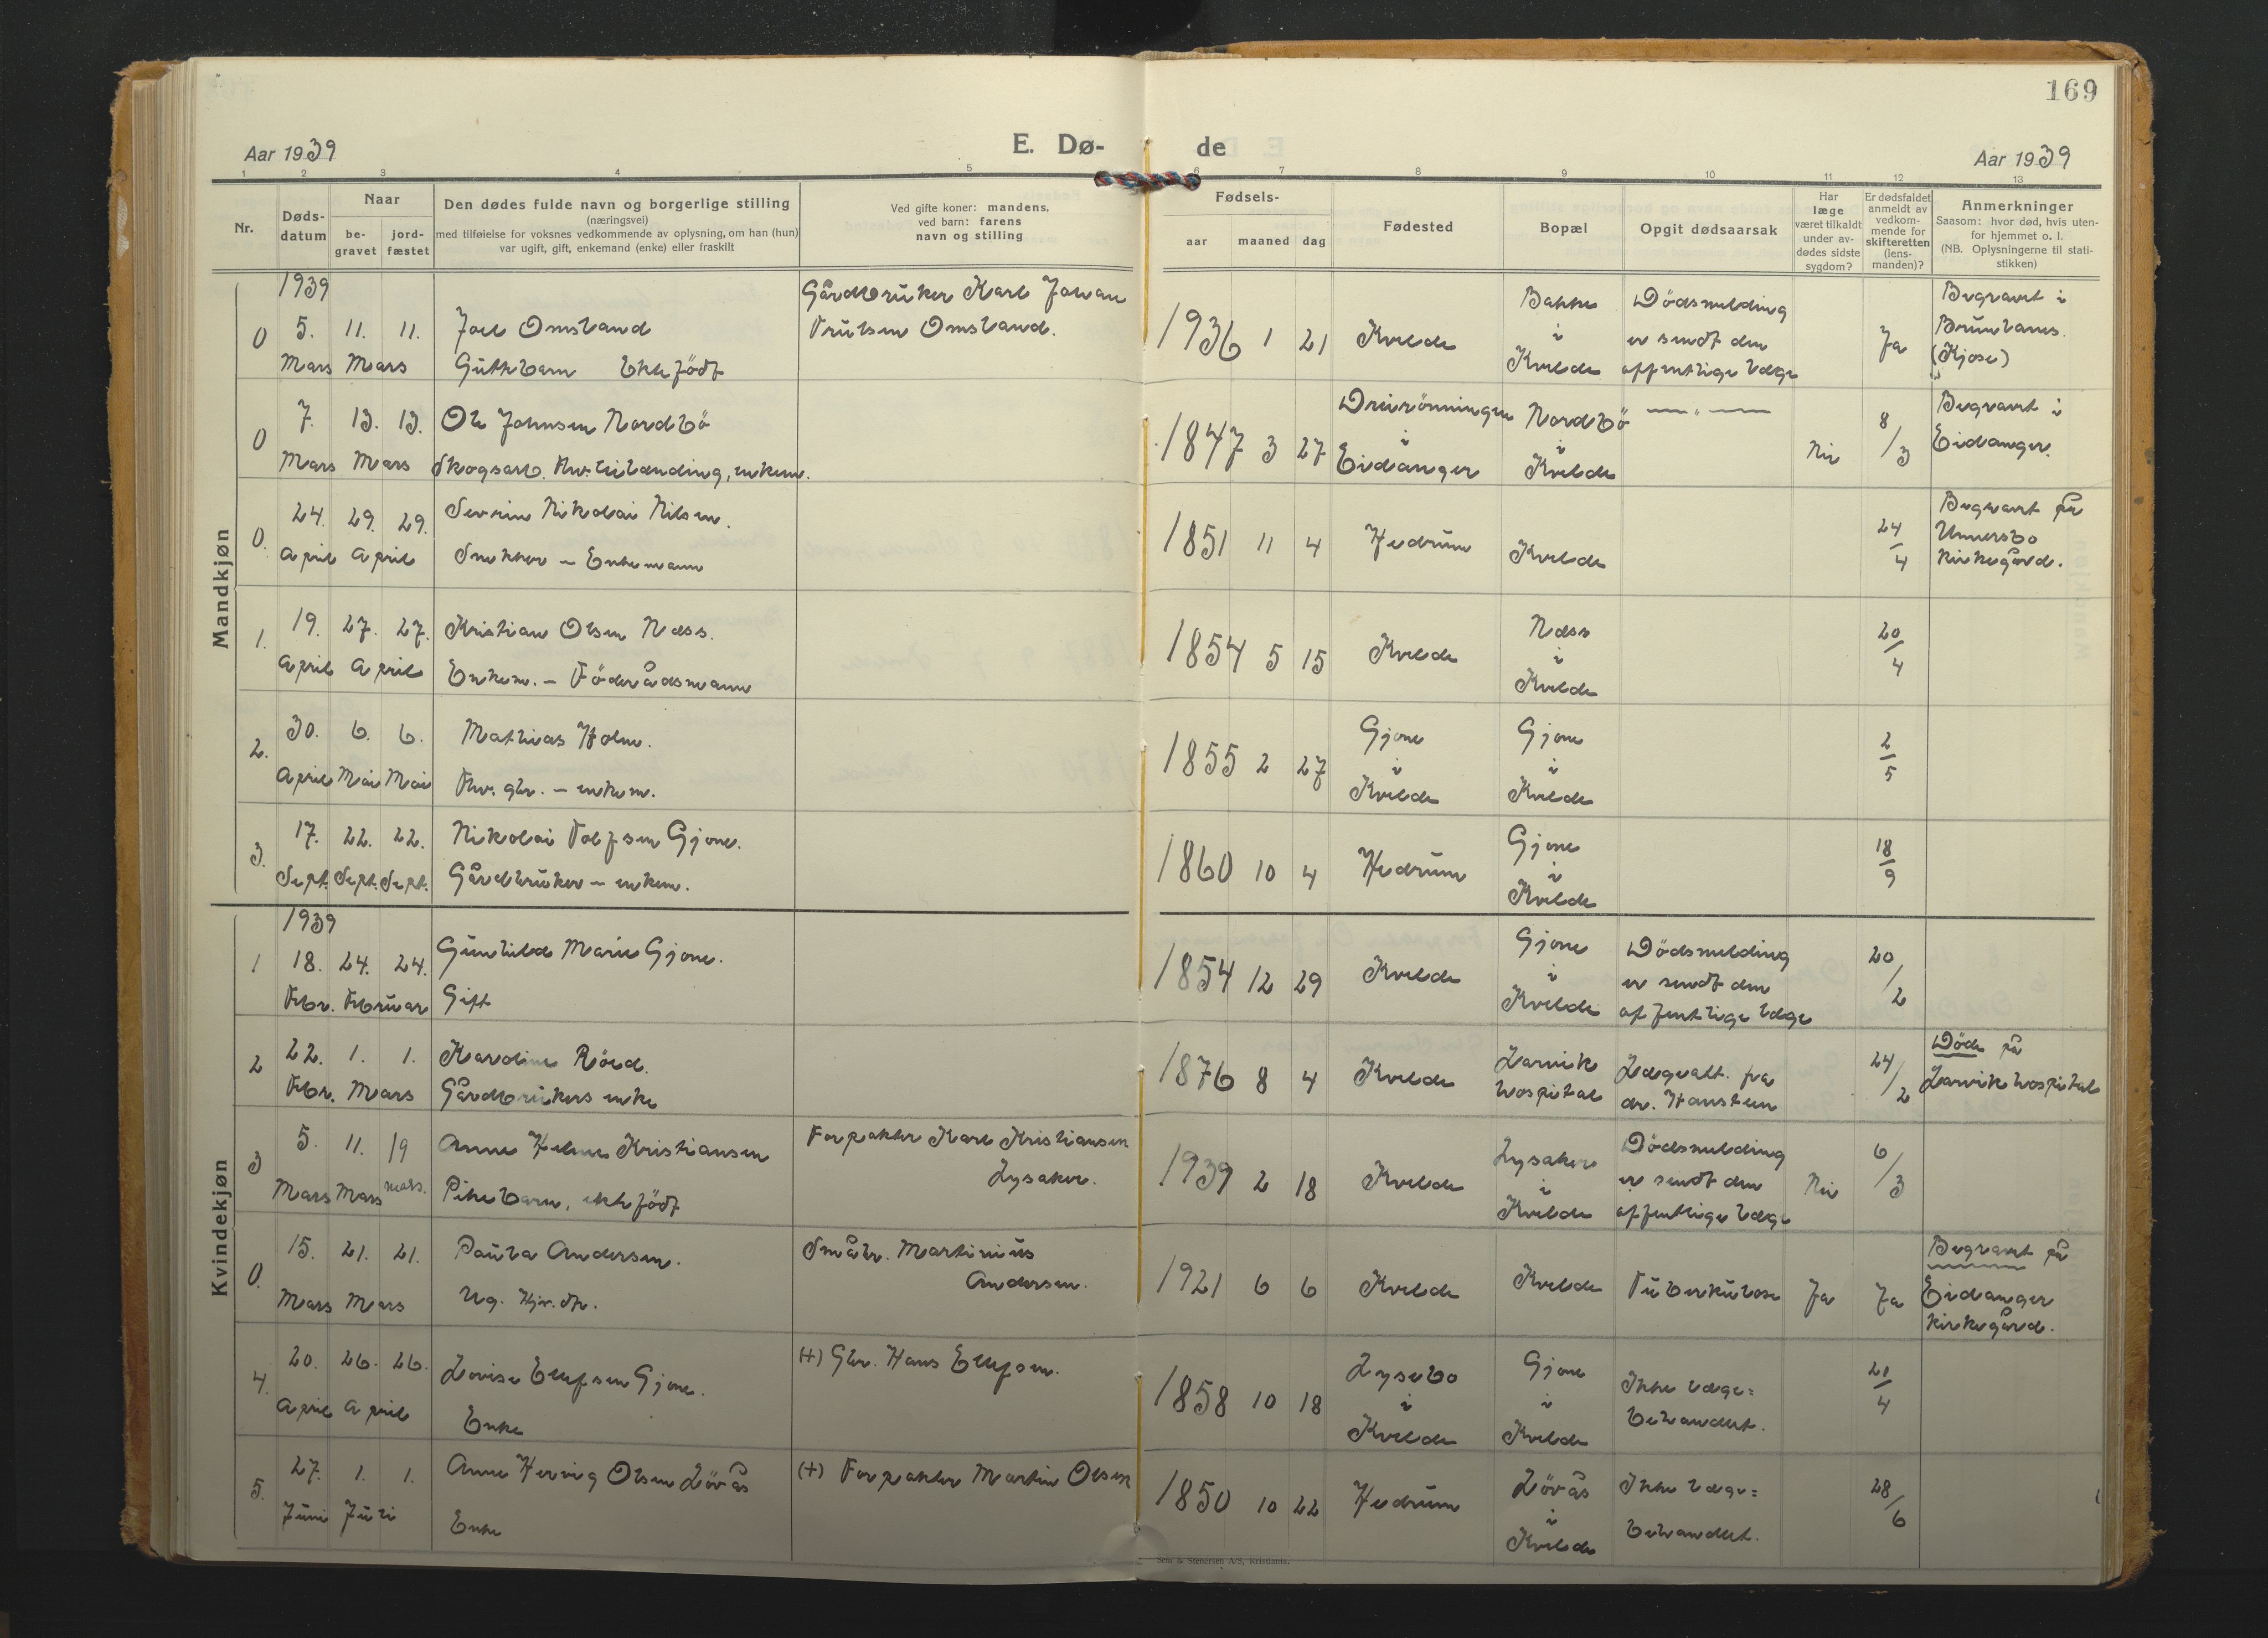 169
Aar 1939
E. Dø-
de
Aar 1939
1 2 3 4 5 6 7 8 9 10 11 12 13
Nr.
Døds-
datum
Naar
be-
gravet
jord-
fæstet
Den dødes fulde navn og borgerlige stilling
(næringsvei)
med tilføielse for voksnes vedkommende av oplysning, om han (hun)
var ugift, gift, enkemand (enke) eller fraskilt
Ved gifte koner: mandens,
ved barn: farens
navn og stilling
Fødsels-
aar maaned dag
Fødested
Bopæl
Opgit dødsaarsak
Har
læge
været tilkaldt
under av-
dødes sidste
sygdom?
Er dødsfaldet
anmeldt av
vedkom-
mende for
skifteretten
(lens-
manden)?
Anmerkninger
Saasom: hvor død, hvis uten-
for hjemmet o. l.
(NB. Oplysningerne til stati-
stikken)
Mandkjøn
1939 Gårdbruker Karl Johan Bakke Dödsmelding Begravet i
0 5. 11. 11. Joel Omsland Trulsen Omsland. 1936 1 21 Kvelde i er sendt den Ja Brunlanes.
Mars Mars Guttebarn Ektefödt Kvelde offentlige læge (Kjose)
7. 13. 13. Ole Johnsen Nordbö Nordbö — " — 8 Begravet i
0 1847 3 27 i i Nei / Eidanger.
Mars Mars Skogsarb. enkem. Eidanger Kvelde 3
24. 29. 29. Severin Nikolai Nilsen. 24 Begravet på
0. 1851 11 4 Hedrum Kvelde — Undersbo
April April Snekker – Enkemann 4 kirkegård.
19. 27. 27. Kristian Olsen Næss. Næss 20
1. 1854 5 15 Kvelde i /
April April Enkem. – Föderådsmann Kvelde 4
30. 6. 6. Mathias Holm. Gjone Gjone 2
2. 1855 2 27 i i —
April Mai Mai Fhv. gbr. – enkem. Kvelde Kvelde 5
17. 22. 22. Nikolai Tolfsen Gjone. Gjone 18
3. 1860 10 4 Hedrum i /
Sept. Sept. Sept. Gårdbruker – enkem. Kvelde 9
Kvindekjøn
1939
1 18. 24. 24. Gunhild Marie Gjone. 1854 12 29 Kvelde Gjone Dödsmelding 20
i er sendt den /
Febr. Februar Gift Kvelde offentlige læge 2
22. 1. 1. Karoline Röed. Larvik Lægeatt. fra 24 Döde på
2 1876 8 4 Kvelde /
Febr. Mars Gårdbrukers enke hospital dr. Hanstein 2 Larvik hospital
5. 11. 19 Anne Helene Kristiansen Forpakter Karl Kristiansen Lysaker Dödsmelding 6
3 Lysaker. 1939 2 18 Kvelde i er sendt den Nei /
Mars Mars mars. Pikebarn, ektefödt Kvelde offentlige læge 3
15. 21. 21. Paula Andersen. Småbr. Martinius Begravet på
0. Andersen. 1921 6 6 Kvelde Kvelde Tuberkulose Ja Ja Eidanger
Mars Mars Ug. Hjv. dtr. kirkegård.
20. 26. 26. Lovise Ellefsen Gjone. (+) Gbr. Hans Ellefsen. Lysebo Gjone Ikke læge= 21
4. 1858 10 18 i i /
April April Enke Kvelde Kvelde behandlet. 4
27. 1. 1. Anne Hervig Olsen Lövås (+) Forpakter Martin Olsen Lövås Ikke læge= 28
5. 1850 10 22 Hedrum i /
Juni Juli Enke Kvelde behandlet. 6
Sem & Stenersen A/S, Kristiania.